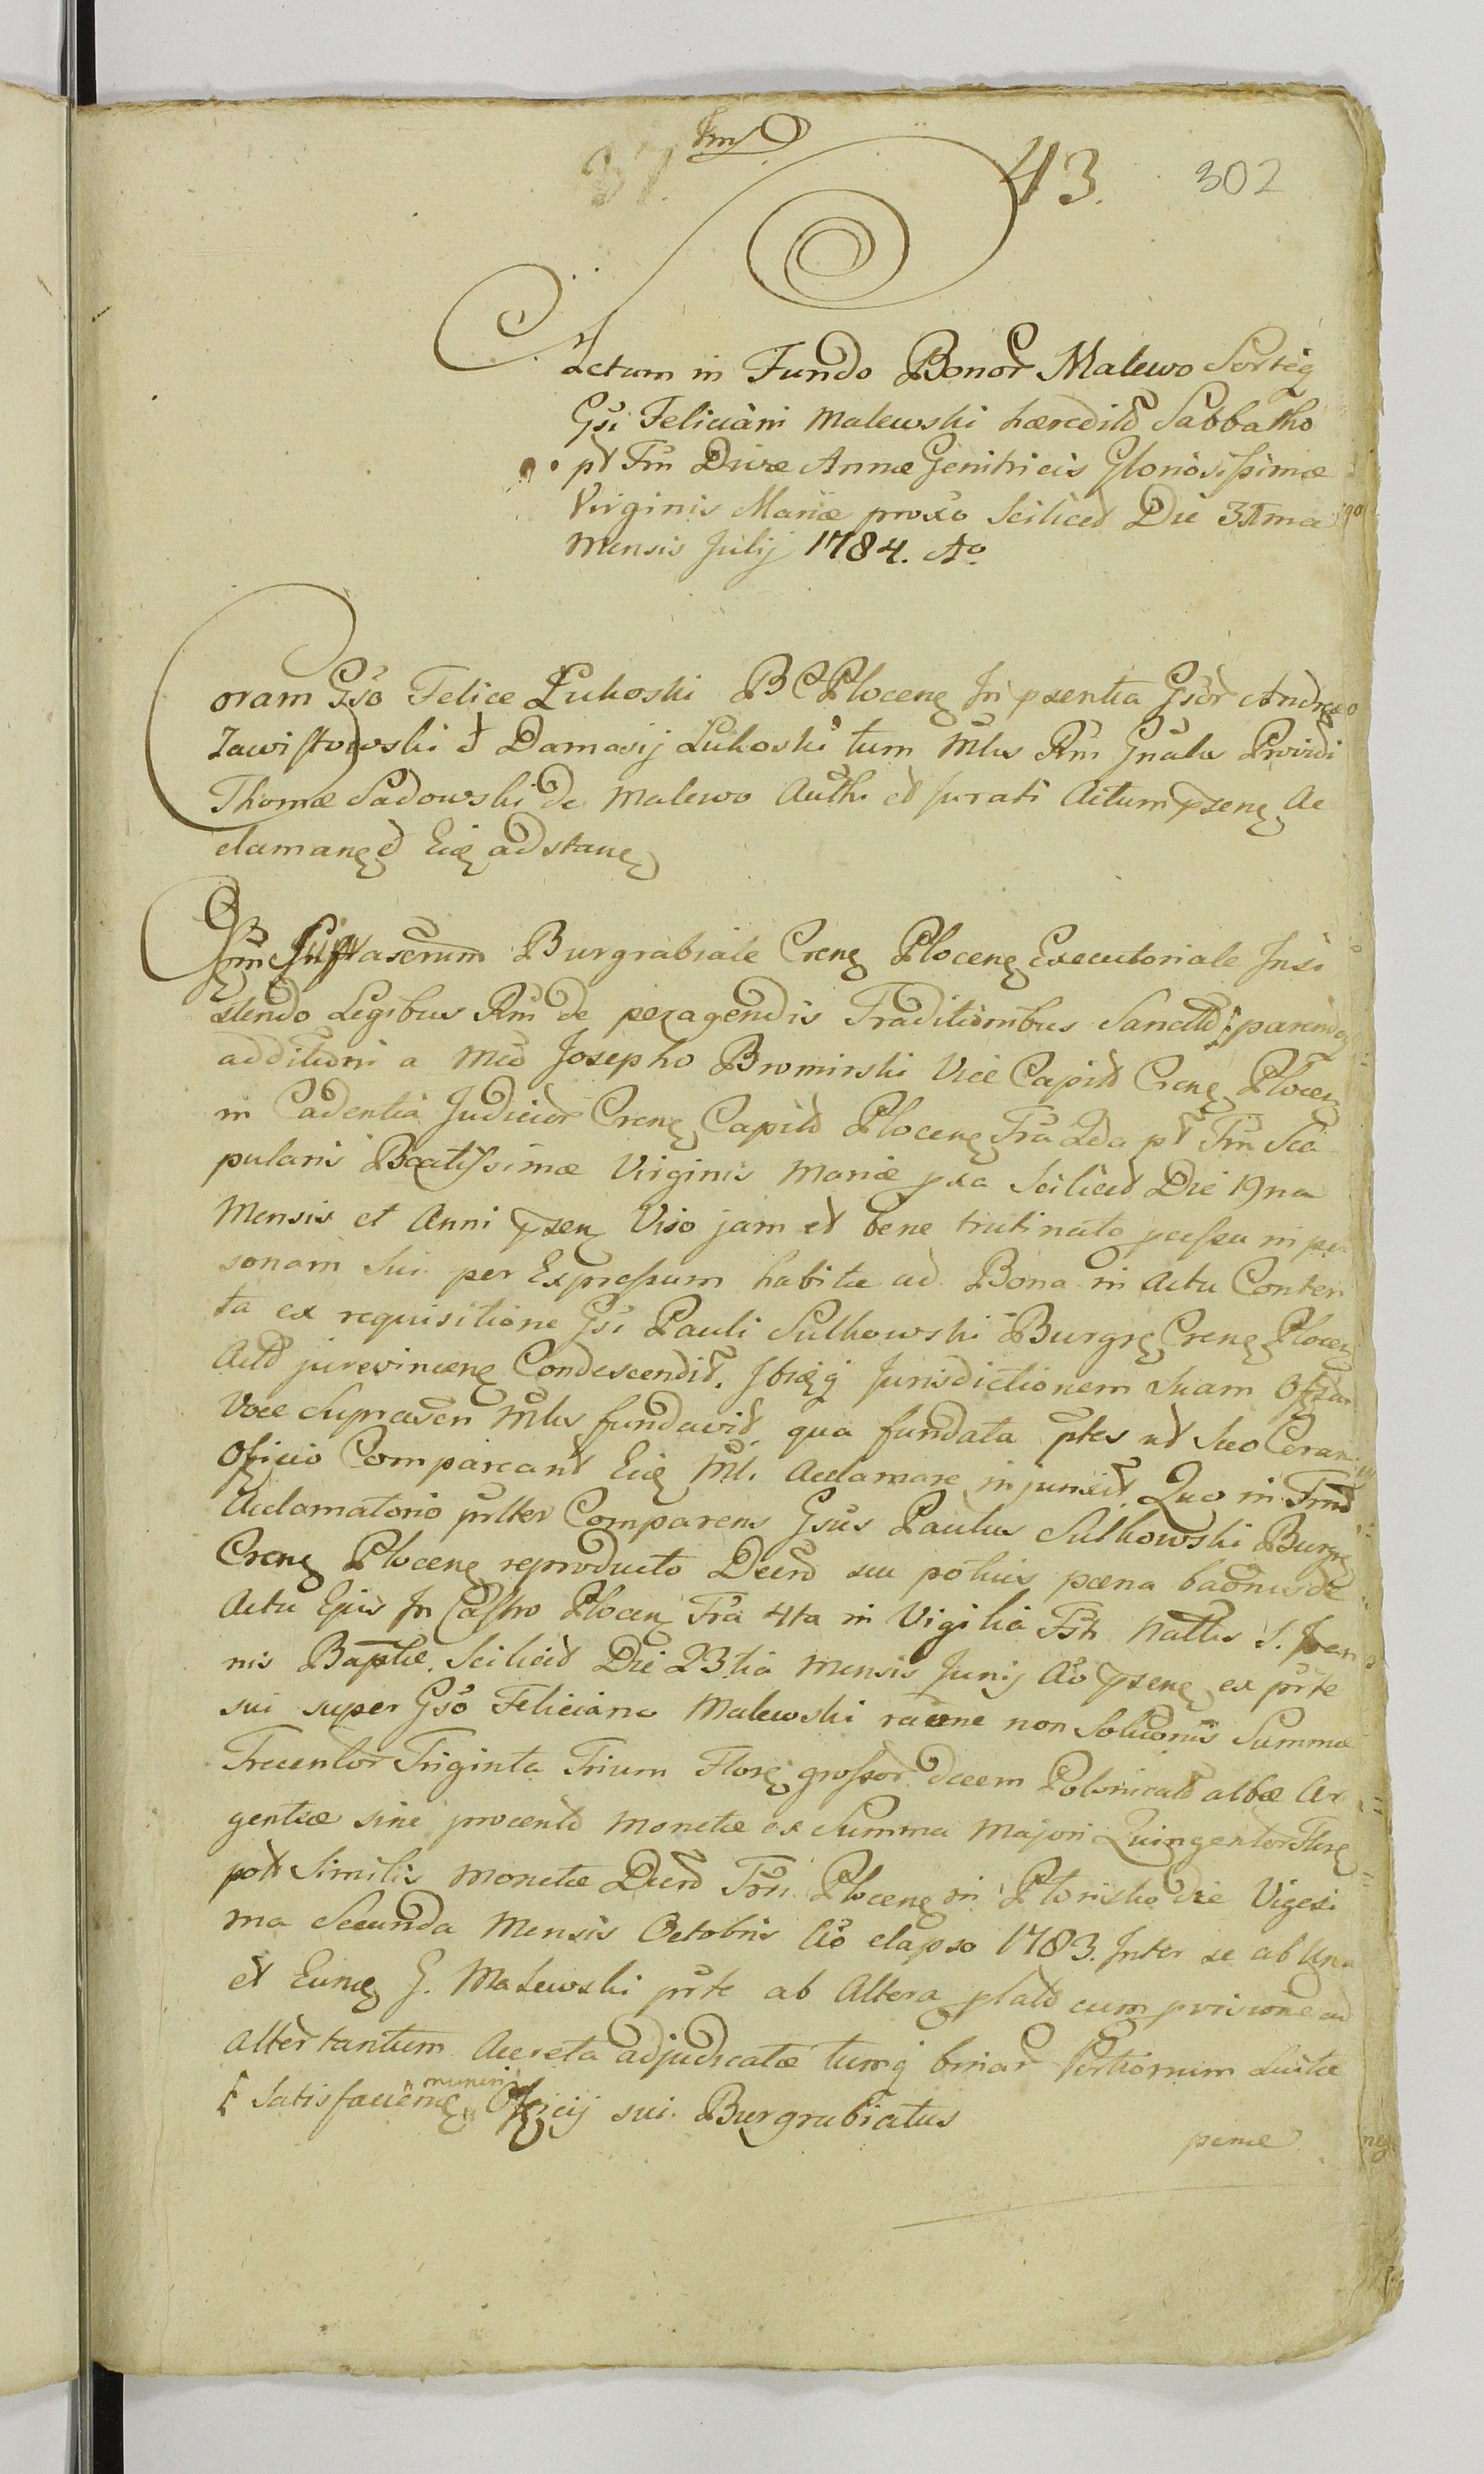 37 43. 302
Actum in Fundo Bonor Malewo Sortiq
Gsi Feliciani Malewski hæredit Sabbatho
pt Fm Divæ Annæ Genitricis Gloriosissimæ
Virginis Mariæ proxo Scilicet Die 31ma
Mensis Julij 1784. Ao
Coram Gso Felice Lukoski B C Plocens In psentia Gsor Andreæ
Zawistowski et Damasij Lukoski tum Mlis Rni Gnalis Providi
Thomæ Sadowski de Malewo Auth et Jurati Actum psens Ac
clamans et Eis adstans
Offm Suprascrum Burgrabiale Crens Plocens Executoriale Insi
stendo Legibus Rni de peragendis Traditionibus Sancitt parendoq
additioni a Mco Josepho Bromirski Vice Capit Crens Plocens
in Cadentia Judicior Crens Capit Plocens Fra 2da pt Fm Sca
pularis Beatissimæ Virginis Mariæ pxa Scilicet Die 19na
Mensis et Anni psen Viso jam et bene trutinato passu in per
sonam sui per Expressum habitæ ad Bona in Actu Conten
ta ex requisitione Gsi Pauli Sulkowski Burgrs Crens Plocens
Actt jurevincens Condescendit. Ibiqq Jurisdictionem Suam Offsam
Voce Suprascri Mlis fundavit, qua fundata ptes ut Suo Coram
Officio Compareant Eis Ml. Acclamare injunxit. Quo in Fmno
Acclamatorio psltter Comparens Gsus Paulus Sulkowski Burgrs
Crens Plocens reproducto Decro seu potius pæna bannis de
Actu Ejus In Castro Plocens Fra 4ta in Vigilia Fsti Nattis S. Joan
nis Baptæ Scilicet Die 23tia Mensis Junij Ao psens ex prte
sui super Gso Feliciano Malewski raone non Soluonis Summæ
Trecentor Triginta Trium Flors grossor decem Polonicalt albæ Ar
genteæ sine procento monetæ ex Summa Majori Quingentor Flors
polt Similis monetæ Decro Trli Plocens in Plonsko die Vigesi
ma Secunda Mensis Octobris Ao elapso 1783. Inter se ab Una
et Eums G. Malewski prte ab Altera plato cum provisione ad
alter tantum Accreta adjudicatæ tumq binar Portionum Luitæ
Satisfacieng muneri Officij sui Burgrabiatus
pame